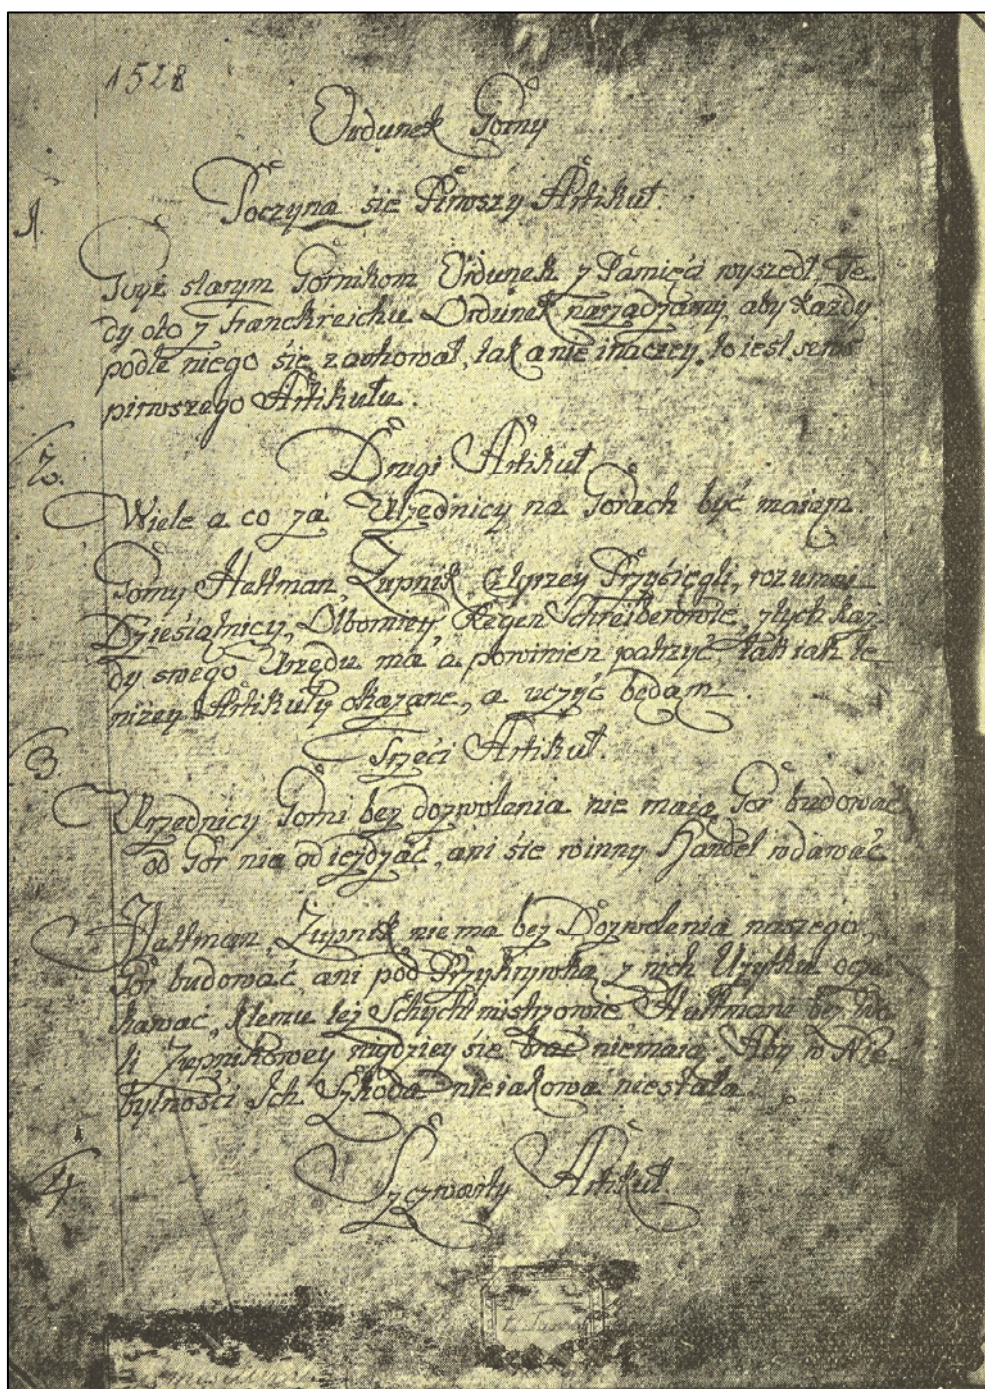 1528
Ordunek Gorny
Poczyna się Pirwszy Artikuł.
1.
Gdyż starym Górnikom Ordunek z Pamięci wyszedł, Te-
dy oto z Franckreichu Ordunek narządzamy, aby każdy
podle niego się zachował, tak a nie inaczey. to iest sens
pirwszego Artikułu.
2.
Drugi Artikuł
Wiele a co za Urzędnicy na Gorach być maiam
Gorny Hattman, Zupnik, Cztyrzey Przysięgli, rozumei
Dziesiątnicy, Olbornicy, Kegen Schreiberowie, z tych każ-
dy swego Urzędu má a powinien patrzyć, tak iak te
niżey Artikuły okazane, a uczyć będam.
3.
Trzeci Artikuł.
Urzednicy Gorni bez dozwolania nie maią Gor budować
od Gór nia odieżdzać, ani sie winny Handel wdawać
Hattman, Zupnik nie ma bez Dozwolenia naszego,
Gór budować, ani pod Przykrywka z nich Użytku ocze-
kawać, ktemu tej Schychtmistrzowie Hattmani bez Wo-
li Zupnikowey nigdziey się brać niemaią. Aby w Nie-
bytności Ich Szkoda nieiakowa niestała.
4.
Szczwarty Artikuł.